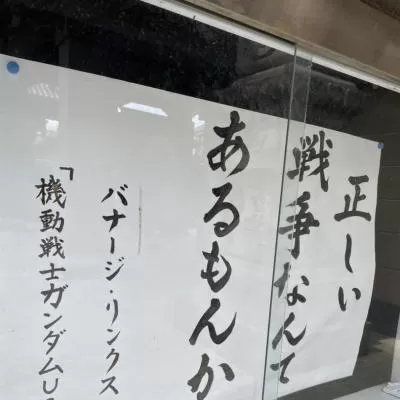 正しい
戦争なんて
あるもんか
バナージ・リンクス
「機動戦士ガンダムU